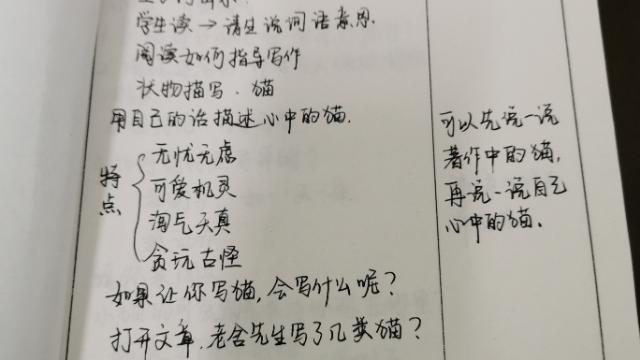 学生读→请生说词语意思.
阅读如何指导写作
状物描写.猫
用自己的话描述心中的猫.
特点
无忧无虑
可爱机灵
淘气天真
贪玩古怪
如果让你写猫,会写什么呢?
打开文章.老舍先生写了几类猫?
可以先说一说
著作中的猫,
再说一说自己
心中的猫.